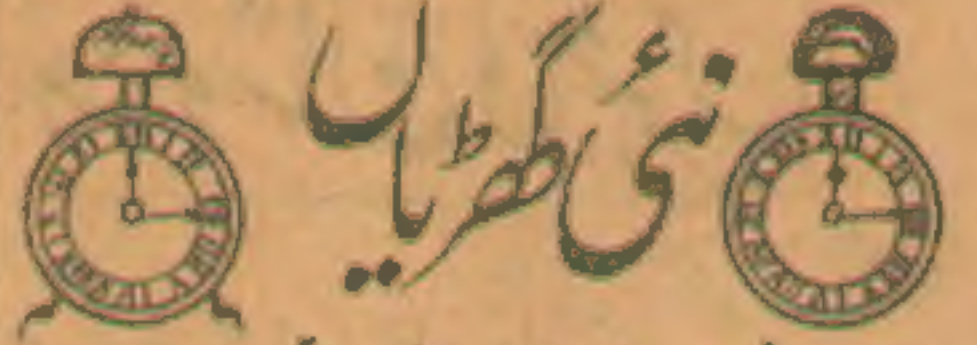 نئی گھڑیاں